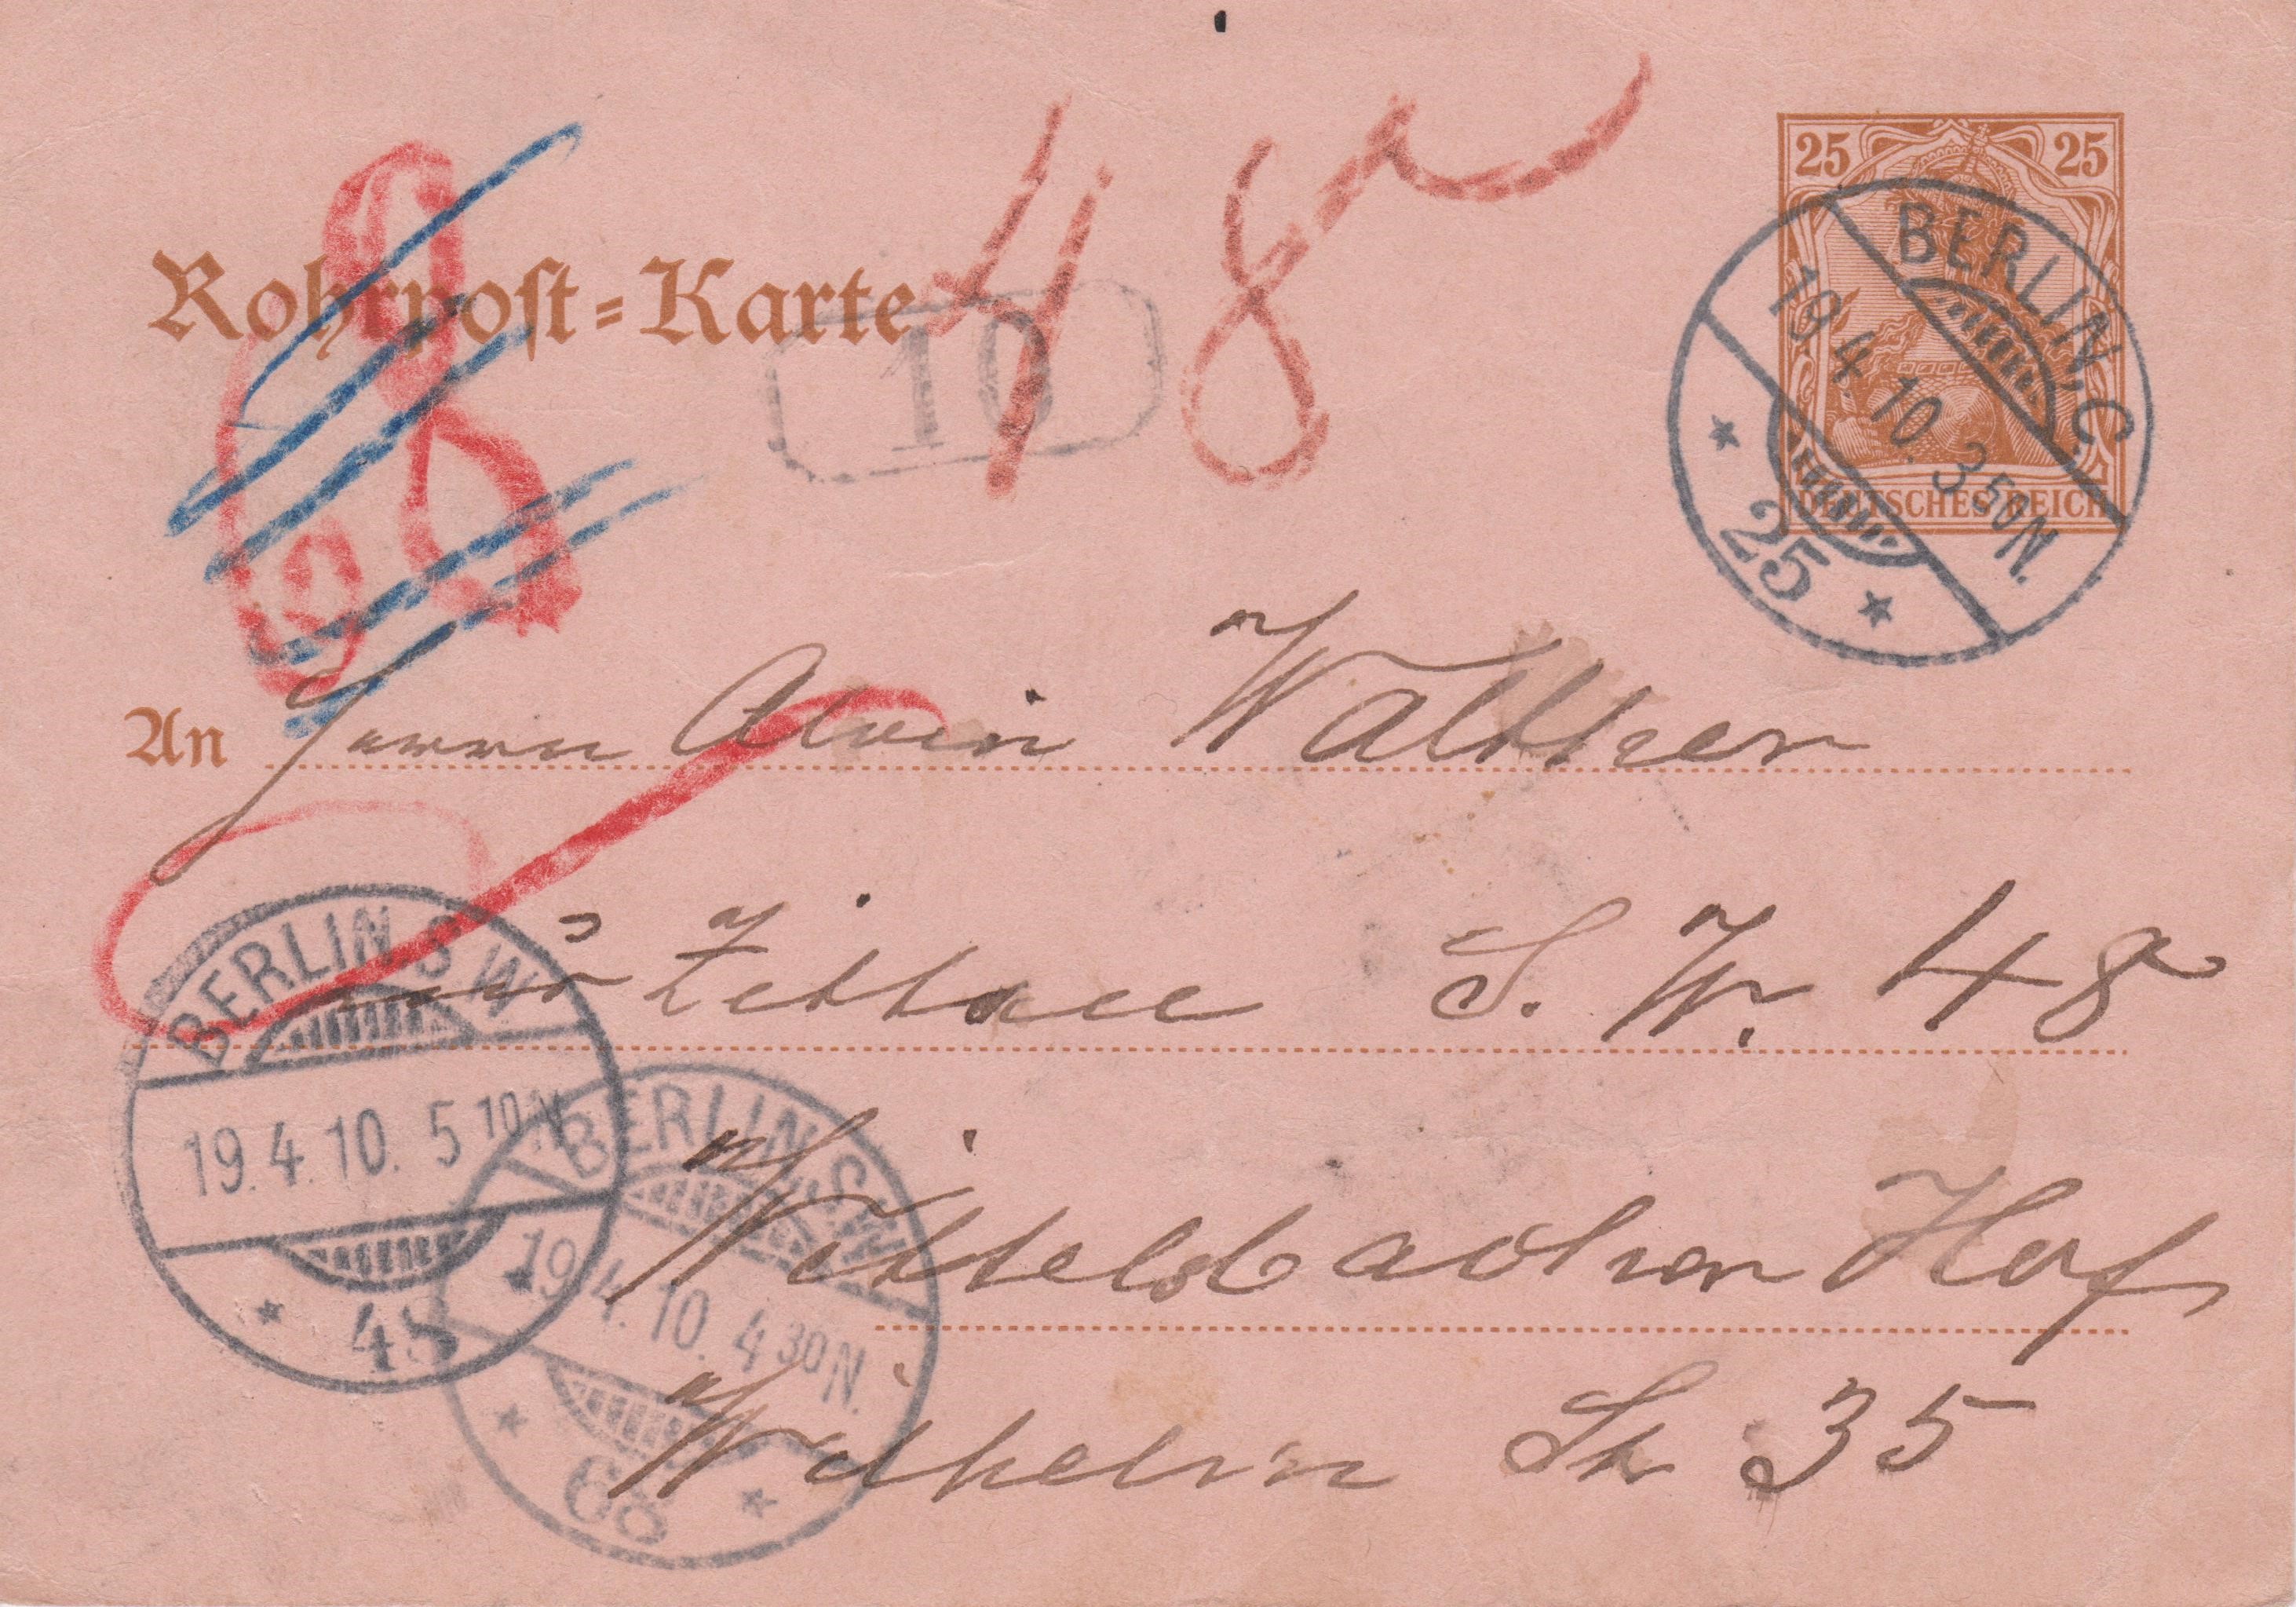 25 25
DEUTSCHES REICH
BERLIN, C.
19.4.10. 3 50 N.
* 25 *
Rohrpoſt=Karte
48
10
An Herrn Alvin Walther
S. W. 48
Wittelsbacher Hof
Wilhelm Str 35
BERLIN. S W
19.4.10. 5 10 N
* 48
BERLIN, SW
19.4.10. 4 30 N.
* 68 *